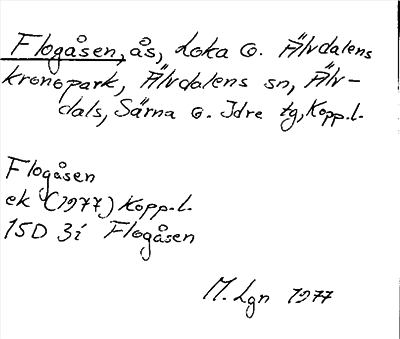 Flogåsen, ås, Loka o. Älvdalens
kronopark, Älvdalens sn, Älv-
dals, Särna o. Idre tg, Kopp.l.
Flogåsen
ek (1977) Kopp.l.
15D 3i Flogåsen
M. Lgn 1977